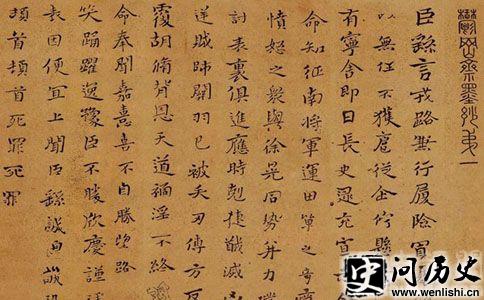 鬱岡齋墨妙第一
臣繇言戎路兼行履險冒
以無任不獲扈從企佇懸
有寧舍即日長史逮充宣
命知征南將軍運田單之奇
憤怒之衆與徐晃同勢并力
討表裏俱進應時剋捷馘滅
逆賊帥關羽已被矢刃傅方反
覆胡脩背恩天道禍淫不終
命奉聞嘉憙喜不自勝望路
笑踊躍逸豫臣不勝欣慶謹
表因便宜上聞臣繇誠惶誠
頓首頓首死罪死罪
史问历史
www.wenlishi.cn